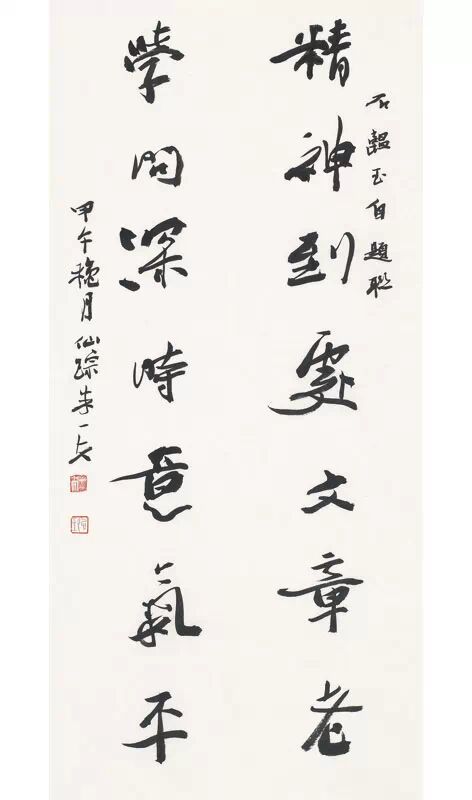 石韞玉自題聯
精神到處文章老
學問深時意氣平
甲午穐月仙踪朱一戈